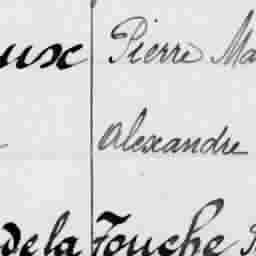 ux Pierre Ma
Alexandre
de la Touche